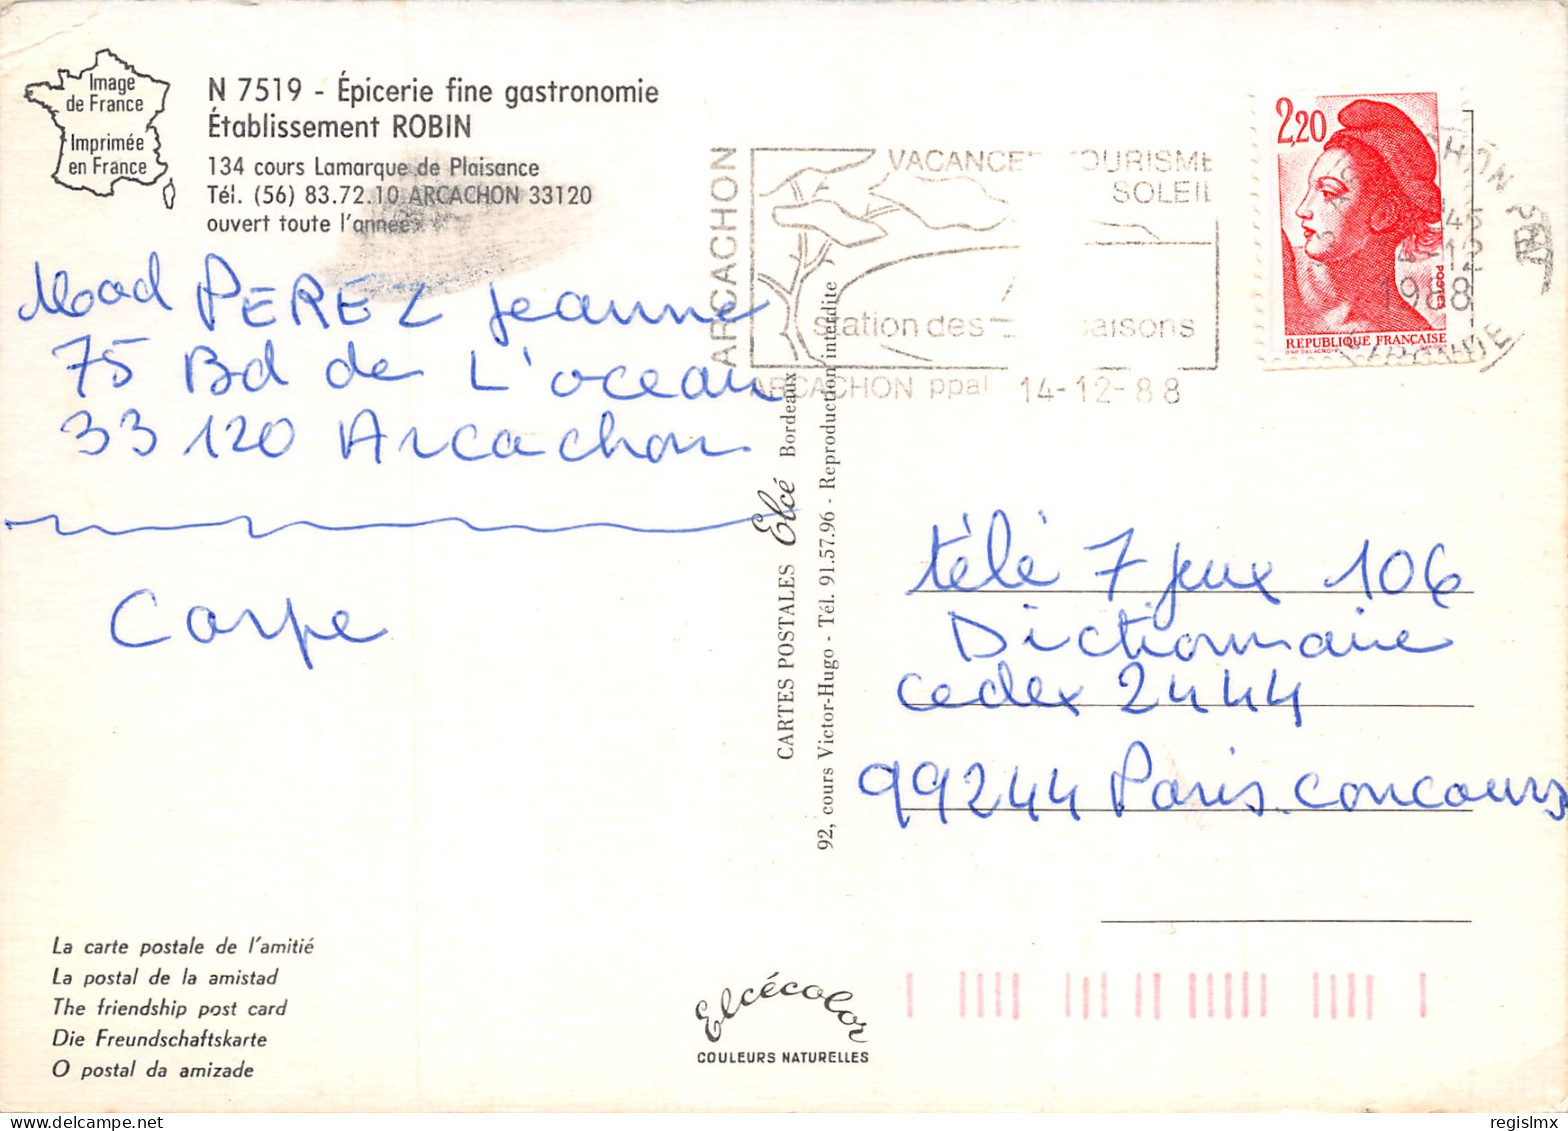 Image
de France
Imprimée
en France
N 7519 - Épicerie fine gastronomie
Établissement ROBIN
134 cours Lamarque de Plaisance
Tél. (56) 83.72.10 ARCACHON 33120
ouvert toute l'année
Mad PEREZ Jeanne
75 Bd de L'ocean
33 120 Arcachon
Carpe
La carte postale de l'amitié
La postal de la amistad
The friendship post card
Die Freundschaftskarte
O postal da amizade
ARCACHON
VACANCES TOURISME
SOLEIL
Station des saisons
ARCACHON ppal 14-12-88
2,20
POSTES
REPUBLIQUE FRANÇAISE
45
12
1988
GIRONDE
CARTES POSTALES Elcé Bordeaux
92, cours Victor-Hugo - Tél. 91.57.96 - Reproduction interdite
télé 7 jeux 106
Dictionnaire
cedex 2444
99244 Paris concours
Elcécolor
COULEURS NATURELLES
regislmx